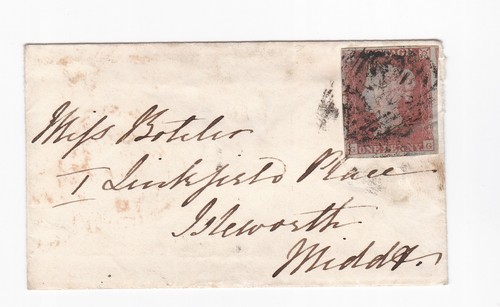 Miss Boteler
1 Linkfield Place
Isleworth
Middx.
ONE PENNY G